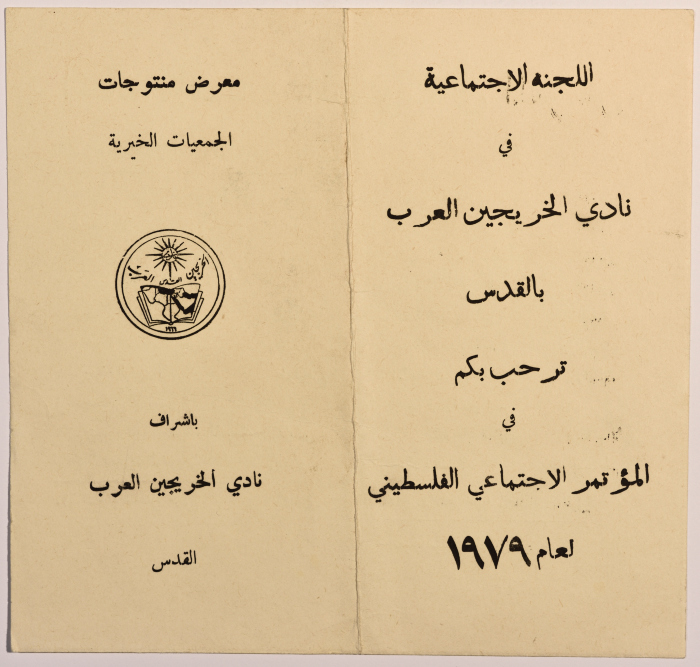 اللجنه الاجتماعية
في
نادي الخريجين العرب
بالقدس
ترحب بكم
في
المؤتمر الاجتماعي الفلسطيني
لعام ١٩٧٩
معرض منتوجات
الجمعيات الخيرية
الخريجين العرب
باشراف
نادي الخريجين العرب
القدس